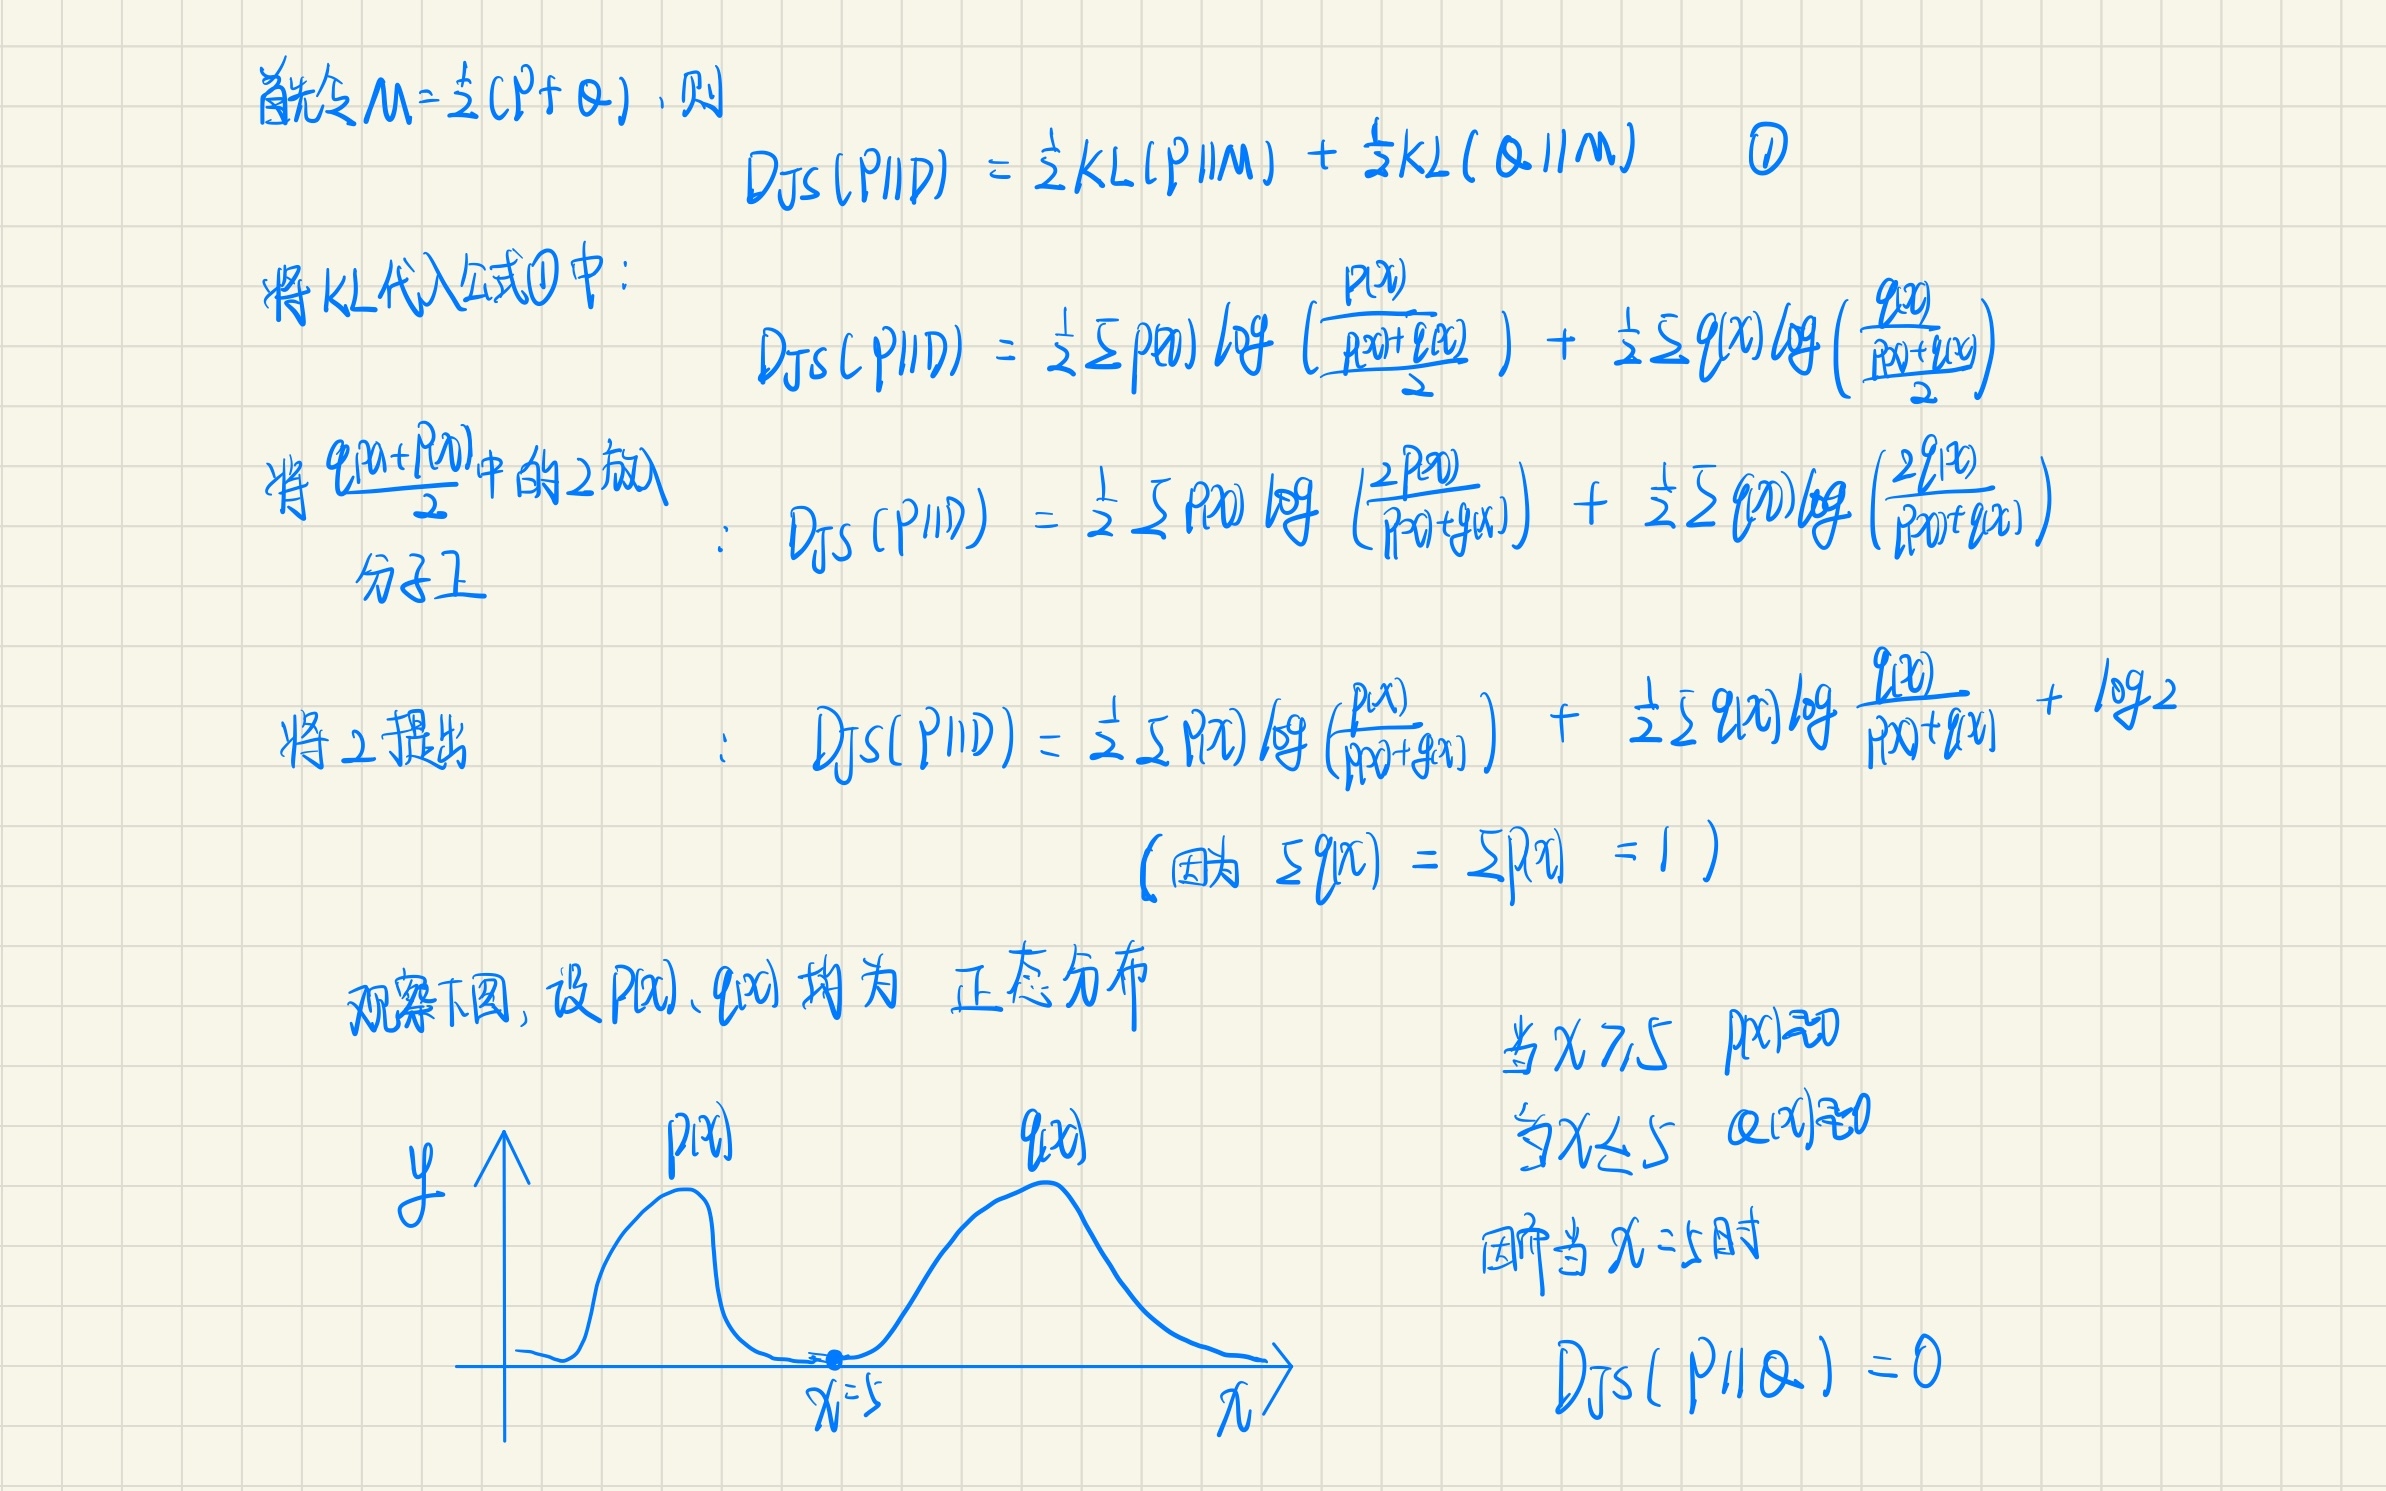 首先令 M=½(P+Q),则
DJS(P||D) = ½KL(P||M) + ½KL(Q||M) ①
将KL代入公式①中:
DJS(P||D) = ½Σp(x) log(p(x)/((p(x)+q(x))/2)) + ½Σq(x) log(q(x)/((p(x)+q(x))/2))
将 (q(x)+p(x))/2 中的2放入
分子上 : DJS(P||D) = ½Σp(x) log(2p(x)/(p(x)+q(x))) + ½Σq(x) log(2q(x)/(p(x)+q(x)))
将2提出 : DJS(P||D) = ½Σp(x) log(p(x)/(p(x)+q(x))) + ½Σq(x) log q(x)/(p(x)+q(x)) + log2
(因为 Σq(x) = Σp(x) =1)
观察下图,设p(x)、q(x)均为 正态分布
当x≥5 p(x)≈0
当x≤5 Q(x)≈0
因所当x=5时
DJS(P||Q)=0
y
p(x)
q(x)
x=5
x